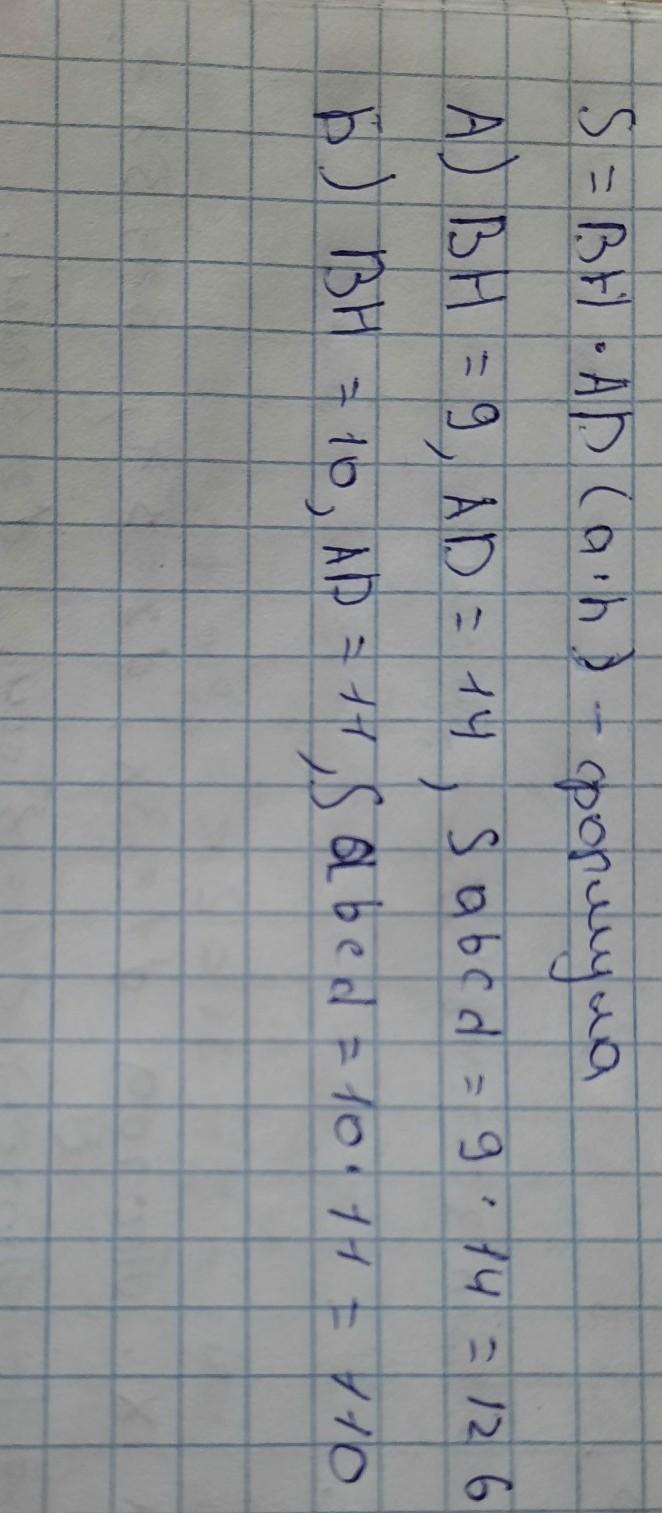 S = BH · AD (a · h) - формула
А) BH = 9, AD = 14, S abcd = 9 · 14 = 126
Б) BH = 10, AD = 11, S abcd = 10 · 11 = 110